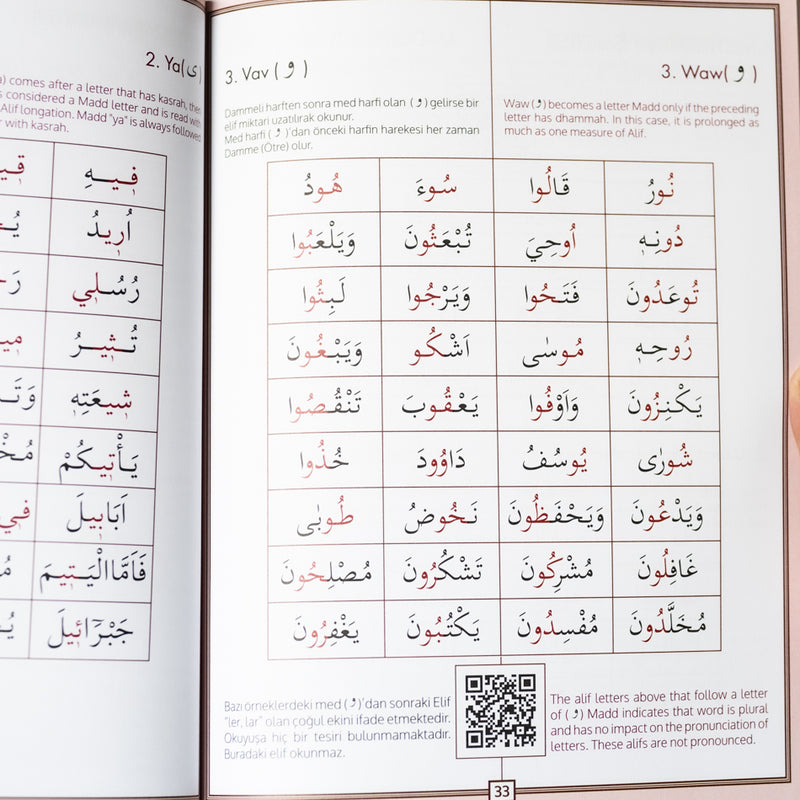 2. Ya(ى)
comes after a letter that has kasrah, then
considered a Madd letter and is read with
Alif longation. Madd "ya" is always followed
with kasrah.
فٖيـهِ
اُرٖيدُ
رُسُلٖي
تُـثٖيـرُ
شٖيعَتِهٖ
يَأْتٖيكُمْ
اَبَابٖيلَ
فَاَمَّاالْيَـتٖيـمَ
جَبْرَٓائٖيلَ
3. Vav ( و )
3. Waw( و )
Dammeli harften sonra med harfi olan ( و ) gelirse bir
elif miktarı uzatılırak okunur.
Med harfi ( و )'dan önceki harfin harekesi her zaman
Damme (Ötre) olur.
Waw ( و ) becomes a letter Madd only if the preceding
letter has dhammah. In this case, it is prolonged as
much as one measure of Alif.
نُـورُ قَالُوا سُـوءَ هُـودُ
دُونِـهٖ اُوحِيَ تُبْعَثُونَ وَيَلْعَبُوا
تُوعَدُونَ فَتَـحُوا وَيَرْجُوا لَـبِثُوا
رُوحِـهٖ مُـوسٰى اَشْـكُـو وَيَبْـغُونَ
يَكْنِـزُونَ وَاَوْفُوا يَعْـقُـوبَ تَنْقُـصُوا
شُـورٰى يُوسُفُ دَاوُودَ خُذُوا
وَيَدْعُونَ وَيَحْفَـظُونَ نَـخُوضُ طُـوبٰى
غَافِلُونَ مُشْرِكُونَ تَشْكُرُونَ مُصْلِـحُونَ
مُخَلَّدُونَ مُفْسِدُونَ يَكْتُبُونَ يَغْفِرُونَ
Bazı örneklerdeki med ( و )'dan sonraki Elif
"ler, lar" olan çoğul ekini ifade etmektedir.
Okuyuşa hiç bir tesiri bulunmamaktadır.
Buradaki elif okunmaz.
The alif letters above that follow a letter
of ( و ) Madd indicates that word is plural
and has no impact on the pronunciation of
letters. These alifs are not pronounced.
33